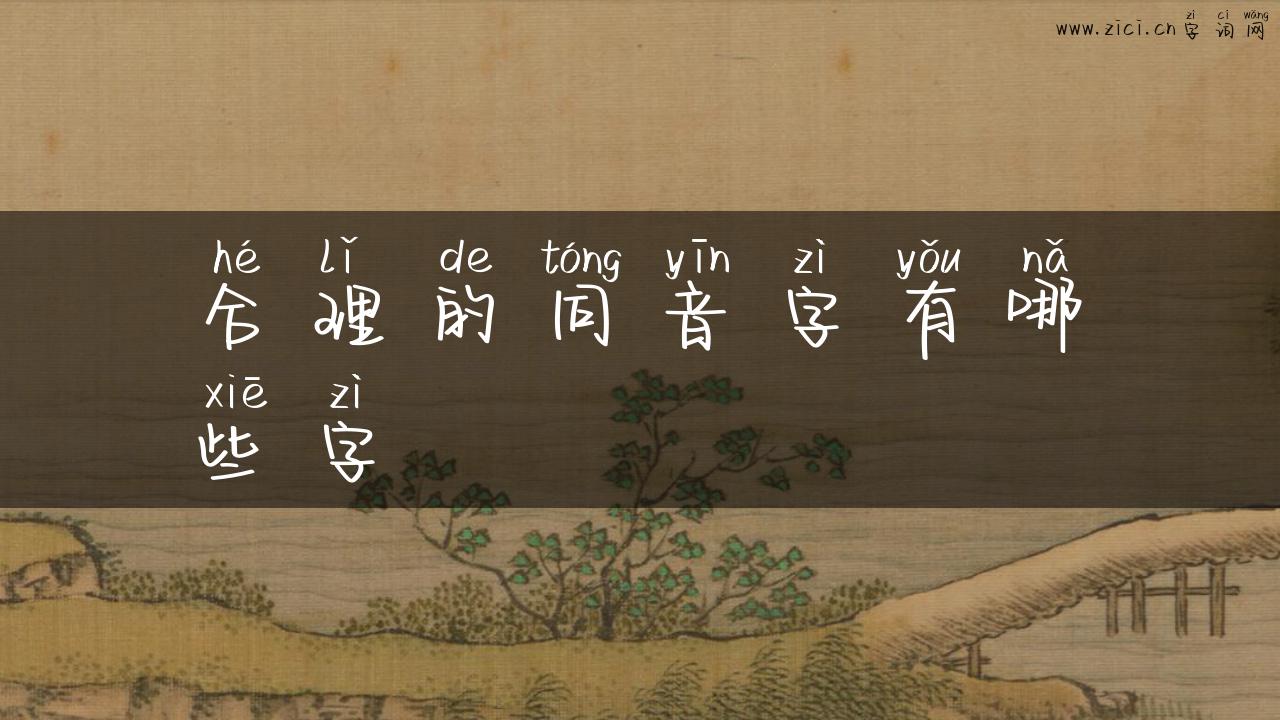 zì cí wǎng
www.zici.cn 字 词 网
hé lǐ de tóng yīn zì yǒu nǎ
合 理 的 同 音 字 有 哪
xiē zì
些 字